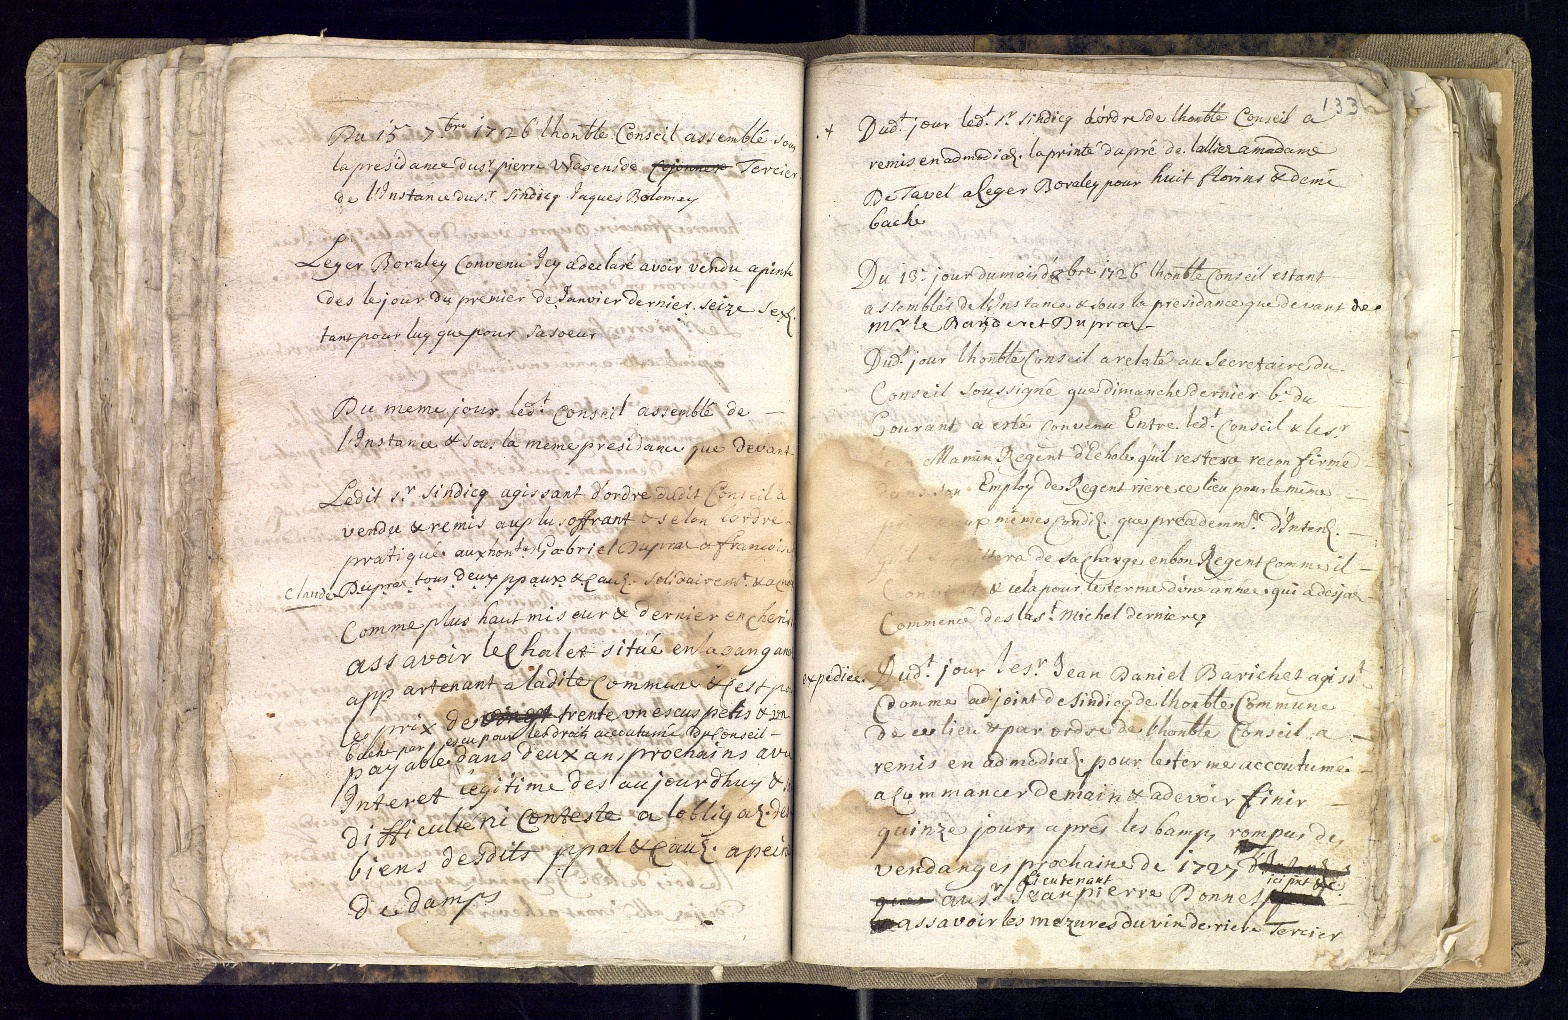 Du 15e 7bre 1726 lhonble Conseil assemblé sous
la présidance du sr pierre Tercier
de l'Instance du sr Sindicq Jaques Bolomey
Leger Boraley Convenu Icy a declaré avoir vendu a pinte
des le jour du premier de Janvier dernier, seize sext
tant pour luy que pour sa soeur
Du meme jour ledt Conseil assemblé de
l'Instance & sous la meme présidance que devant
Ledit sr Sindicq agissant d'ordre dudit Conseil a
vendu & remis au plus offrant & selon l'ordre
pratiqué aux honts Gabriel Dupraz & francois
Claude Dupraz tous deux ppaux & Cauõ. solidairemt &
Comme plus haut miseur & dernier encheri
assavoir le Chalet situé en
appartenant a ladite Commune & C'est po
le prix de trente un escus petis &
bache par escu pour les droits accutumé du Conseil
payable dans deux ans prochains avec
Interet legitime des aujourdhuy &
difficulté ni Conteste a lobligaõ. des
biens desdits ppal & Cauõ. a peine
de damps
133
Dudt jour ledt sr Sindicq d'ordre de lhonble Conseil a
remis en admodiaõ. la printé du pré de lallier a madame
De Tavel a Leger Boraley pour huit florins & demé
bache
Du 13e jour du mois d'9bre 1726 lhonble Conseil estant
assemblés de l'Instance & sous la présidance que devant de
mr le Banderet Dupraz
Dudt jour lhonble Conseil a relaté au Secretaire du
Conseil soussigné que dimanche dernier 6e du
Courant a esté convenu Entre ledt Conseil & le sr
Mamin Regent d'Ehole quil restera reconfirmé
Employ de Regent riere ce lieu pour le mème
mèmes Condiõ. que précedemmt d'Intenõ.
de sa Charge en bon Regent Comme il
& cela pour le terme d'une année qui a desja
Commencé des la st Michel derniere
expediée Dudt jour le sr Jean Daniel Barichet agisst
Comme adjoint de Sindicq de lhonble Commune
de ce lieu & par ordre de lhonble Conseil, a
remis en admodiaõ. pour le terme accoutumé
a Commancer demain & a devoir finir
quinze jours aprés les bamps rompus des
vendanges prochaine de 1727
lieutenant
au sr Jean pierre Bonnet
assavoir les mezures du vin de riere Tercier